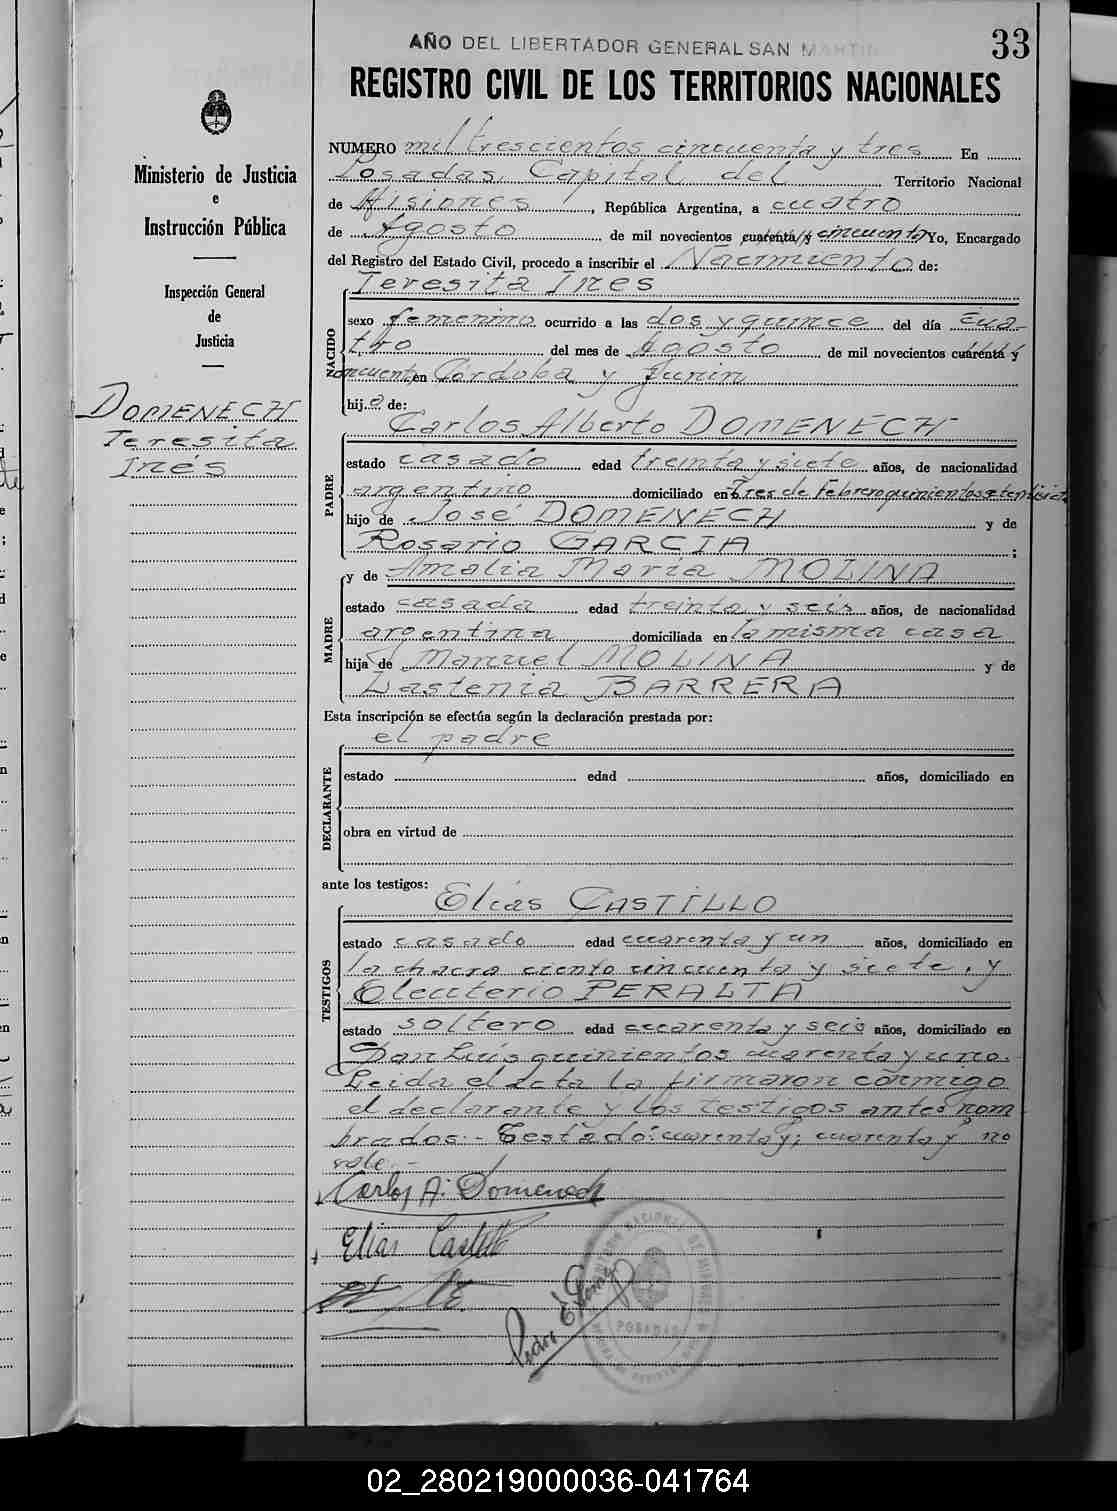 AÑO DEL LIBERTADOR GENERAL SAN MARTIN
33
REGISTRO CIVIL DE LOS TERRITORIOS NACIONALES
Ministerio de Justicia
e
Instrucción Pública
Inspección General
de
Justicia
DOMENECH
Teresita
Inés
NUMERO mil trescientos cincuenta y tres En
Posadas, Capital del Territorio Nacional
de Misiones, República Argentina, a cuatro
de Agosto de mil novecientos cuarenta y cincuenta Yo, Encargado
del Registro del Estado Civil, procedo a inscribir el Nacimiento de:
Teresita Ines
NACIDO
sexo femenino ocurrido a las dos y quince del día cua-
tro del mes de Agosto de mil novecientos cuarenta y
cincuenta en Córdoba y Junin
hija de:
Carlos Alberto DOMENECH
PADRE
estado casado edad treinta y siete años, de nacionalidad
argentino domiciliado en Tres de Febrero quinientos
hijo de José DOMENECH y de
Rosario GARCIA ;
y de Amalia María MOLINA
MADRE
estado casada edad treinta y seis años, de nacionalidad
argentina domiciliada en la misma casa
hija de Manuel MOLINA y de
Lastenia BARRERA
Esta inscripción se efectúa según la declaración prestada por:
el padre
DECLARANTE
estado edad años, domiciliado en
obra en virtud de
ante los testigos:
Elías CASTILLO
TESTIGOS
estado casado edad cuarenta y un años, domiciliado en
la chacra ciento cincuenta y siete, y
Eleuterio PERALTA
estado soltero edad cuarenta y seis años, domiciliado en
San Luis quinientos cuarenta y uno.
Leida el Acta la firmaron conmigo
el declarante y los testigos antes nom-
brados.- Testado: cuarenta y; cuarenta y no
vale.-
Carlos A. Domenech
Elias Castillo
Pedro E Gomez
POSADAS
02_280219000036-041764